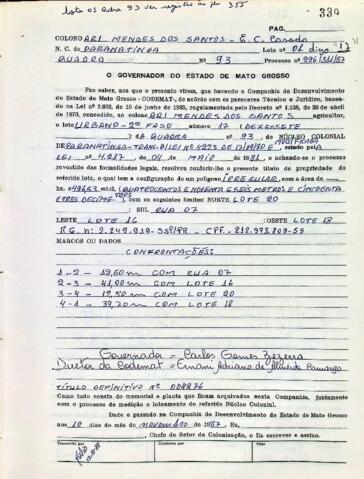 Lote 01 Qdra 93 ver registro as fls 355
330
PAG.
COLONO ARI MENDES DOS SANTOS - E. C. Casado
N. C. de PARANATINGA Lote nº 01 digo 17
QUADRA Nº 93 Processo nº
O GOVERNADOR DO ESTADO DE MATO GROSSO
Faz saber, aos que o presente virem, que havendo a Companhia de Desenvolvimento
do Estado de Mato Grosso - CODEMAT-, de acordo com os pareceres Técnico e Jurídico, basea-
do na Lei nº de 10 de junho de regulamentada pelo Decreto nº 1.138, de 30 de abril
de 1970, concedido, ao colono ARI MENDES DOS SANTOS agricultor,
o lote URBANO - 2ª FASE número 17 (DEZESSETE
) da QUADRA nº 93, do NÚCLEO COLONIAL
DE PARANATINGA - LEI nº 4225 DE E MODIFICADA
LEI 4.287, de 04, de MAIO de 1981, e achando-se o processo
revestido das formalidades legais, resolveu conferir-lhe o presente título de propriedade do
referido lote, o qual tem a configuração de um polígono IRREGULAR, com a área de
(QUATROCENTOS E NOVENTA E SEIS METROS E CINCOENTA
E TRES com os seguintes limites: NORTE LOTE 20
SUL RUA 07
LESTE LOTE 16 OESTE LOTE 18
R.G. nº 2.249.939-SSP/PR - CPF. 212.973.809-59
MARCOS OU DADOS
CONFRONTAÇÕES:
1-2 - COM RUA 07
2-3 - 41,00m COM LOTE 16
3-4 - 12,50m COM LOTE 20
4-1 - 38,70m COM LOTE 18
Governador = Carlos Gomes Bezerra
Diretor da Codemat = Ernani Adriano de Almeida Camargo
TÍTULO DEFINITIVO Nº 004876
Como tudo consta do memorial e planta que ficam arquivados nesta Companhia, juntamente
com o processo de medição e loteamento de referido Núcleo Colonial.
Dado e passado na Companhia de Desenvolvimento do Estado de Mato Grosso
aos 10 dias do mês de NOVEMBRO de 1987, Eu,
Chefe do Setor de Colonização, o fiz escrever e assino.
Transcrito por
Conferido
Visto